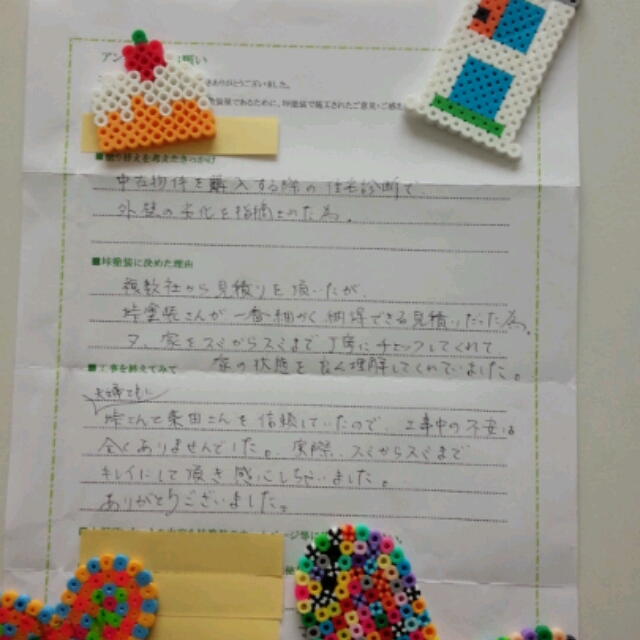 アン
願い
ありがとうございました。
塗装屋であるために、坪塗装で施工されたご意見・ご感
■塗り替えを考えたきっかけ
中古物件を購入する際の住宅診断で、
外壁の劣化を指摘された為。
■坪塗装に決めた理由
複数社から見積りを頂いたが、
坪塗装さんが一番細かく納得できる見積りだった為。
又、家をスミからスミまで丁寧にチェックしてくれて
家の状態を良く理解してくれていました。
■工事を終えてみて
夫婦で
坪さんと柴田さんを信頼していたので、工事中の不安は
全くありませんでした。実際、スミからスミまで
キレイにして頂き感じしました。
ありがとうございました。